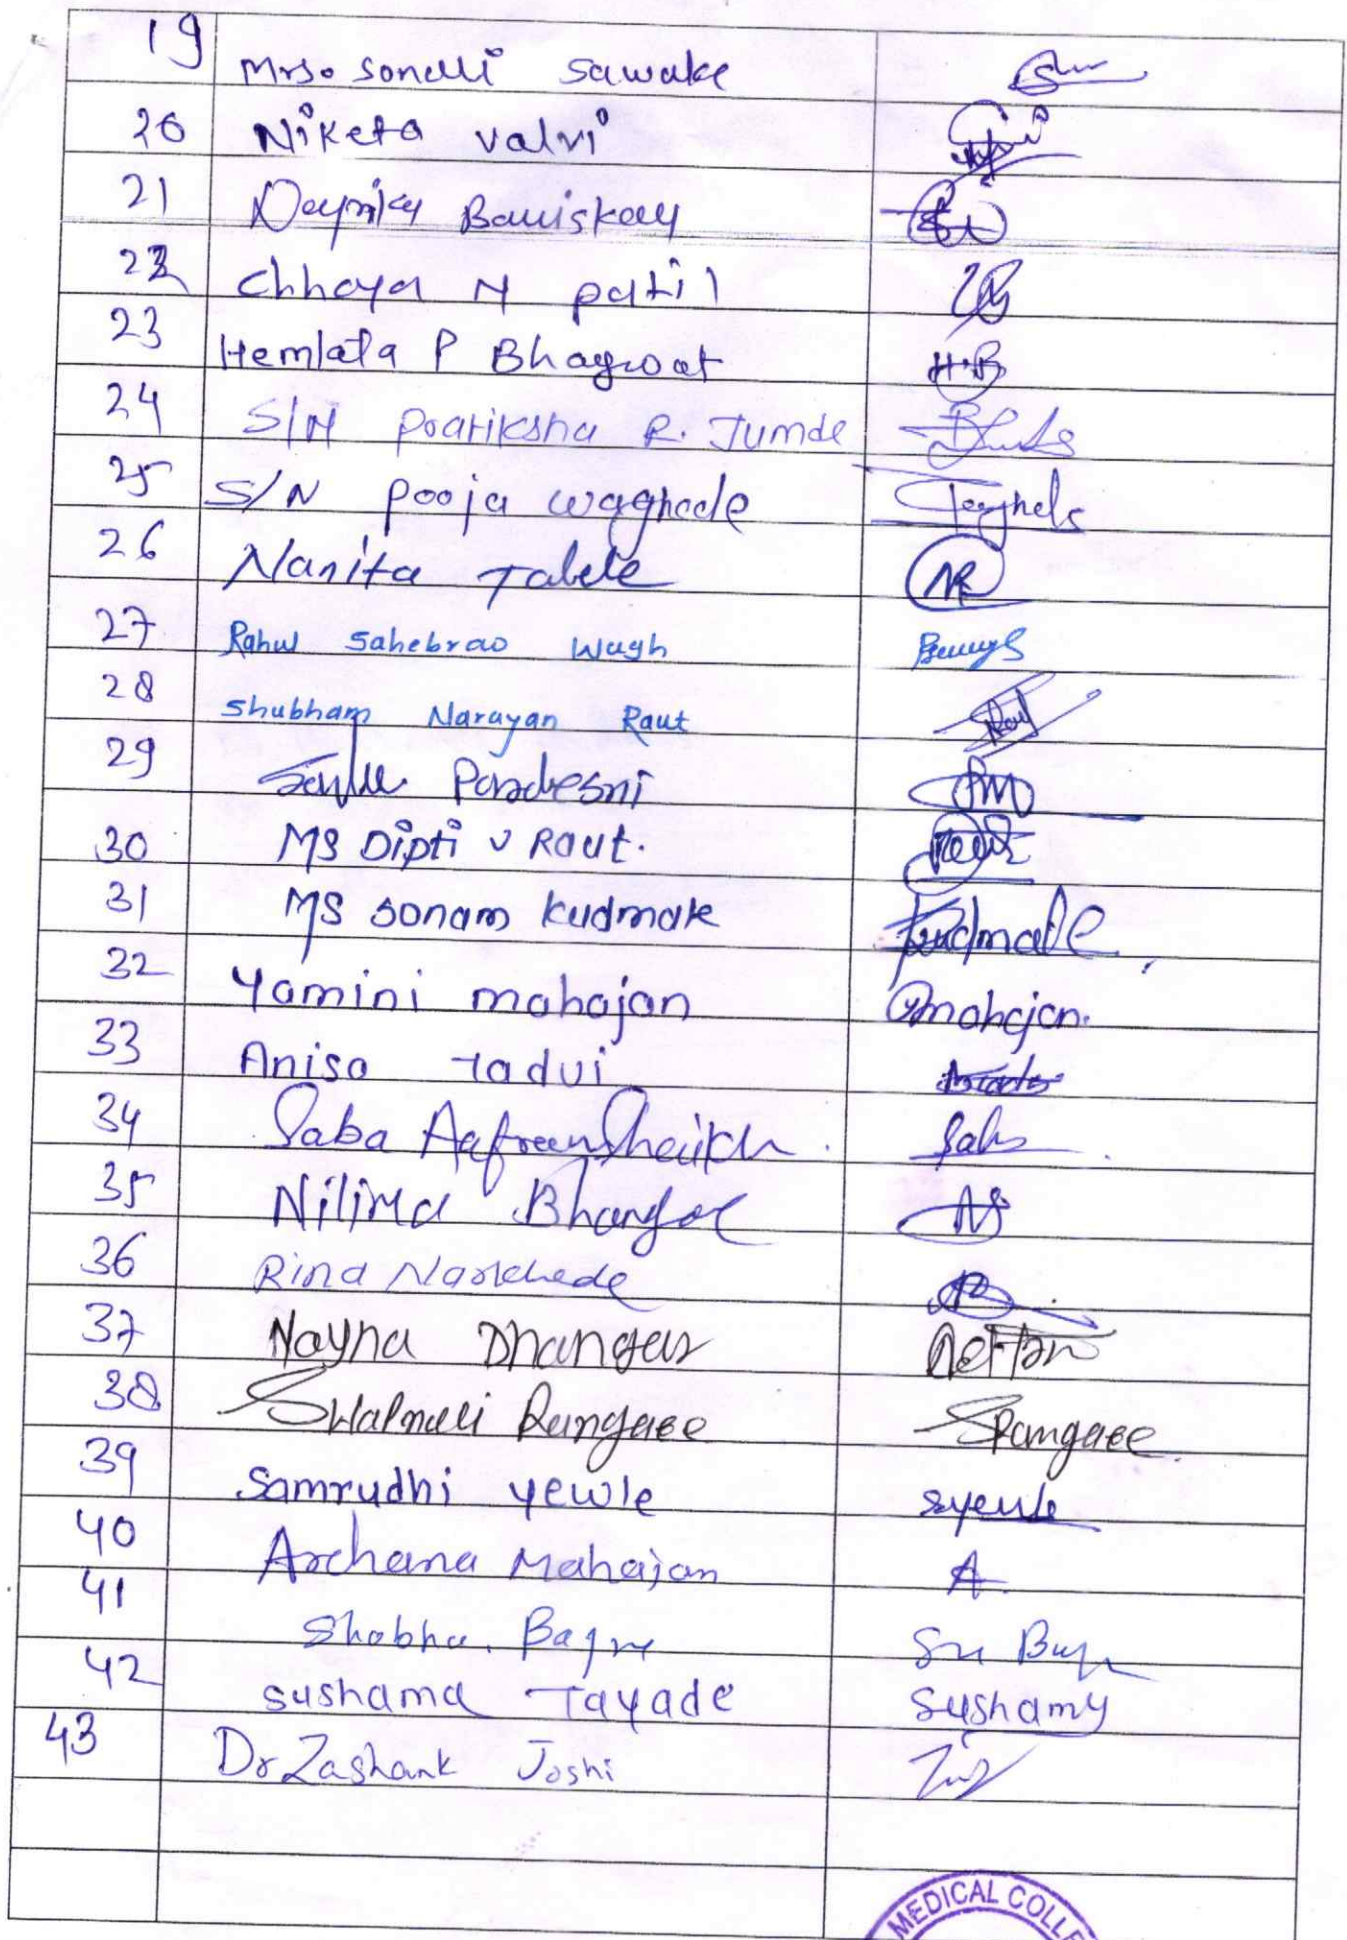 19 Mrs. Sonalli Sawake
20 Niketa Valvi
21 Baviskar
22 Chhaya N patil
23 Hemlata P Bhagwat H.B
24 S/N Pratiksha R. Jumde
25 S/N Pooja Waghode
26 Nanita Tabele NR
27 Rahul Sahebrao Wagh
28 Shubham Narayan Raut Raut
29 Pardeshi
30 MS Dipti V Raut. Raut
31 MS Sonam Kudmate Kudmate
32 Yamini mahajan mahajan.
33 Anisa Tadvi
34 Saba Aafreen Shaikh. Saba
35 Nilima Bhangale
36 Rina Narkhede
37 Nayna Dhangar
38 Swapnali Rangaee SRangaee.
39 Samrudhi yewle syewle
40 Archana Mahajan A.
41 Shobha. Bagre
42 sushama Tayade Sushamy
43 Dr Zashank Joshi
MEDICAL COLLE